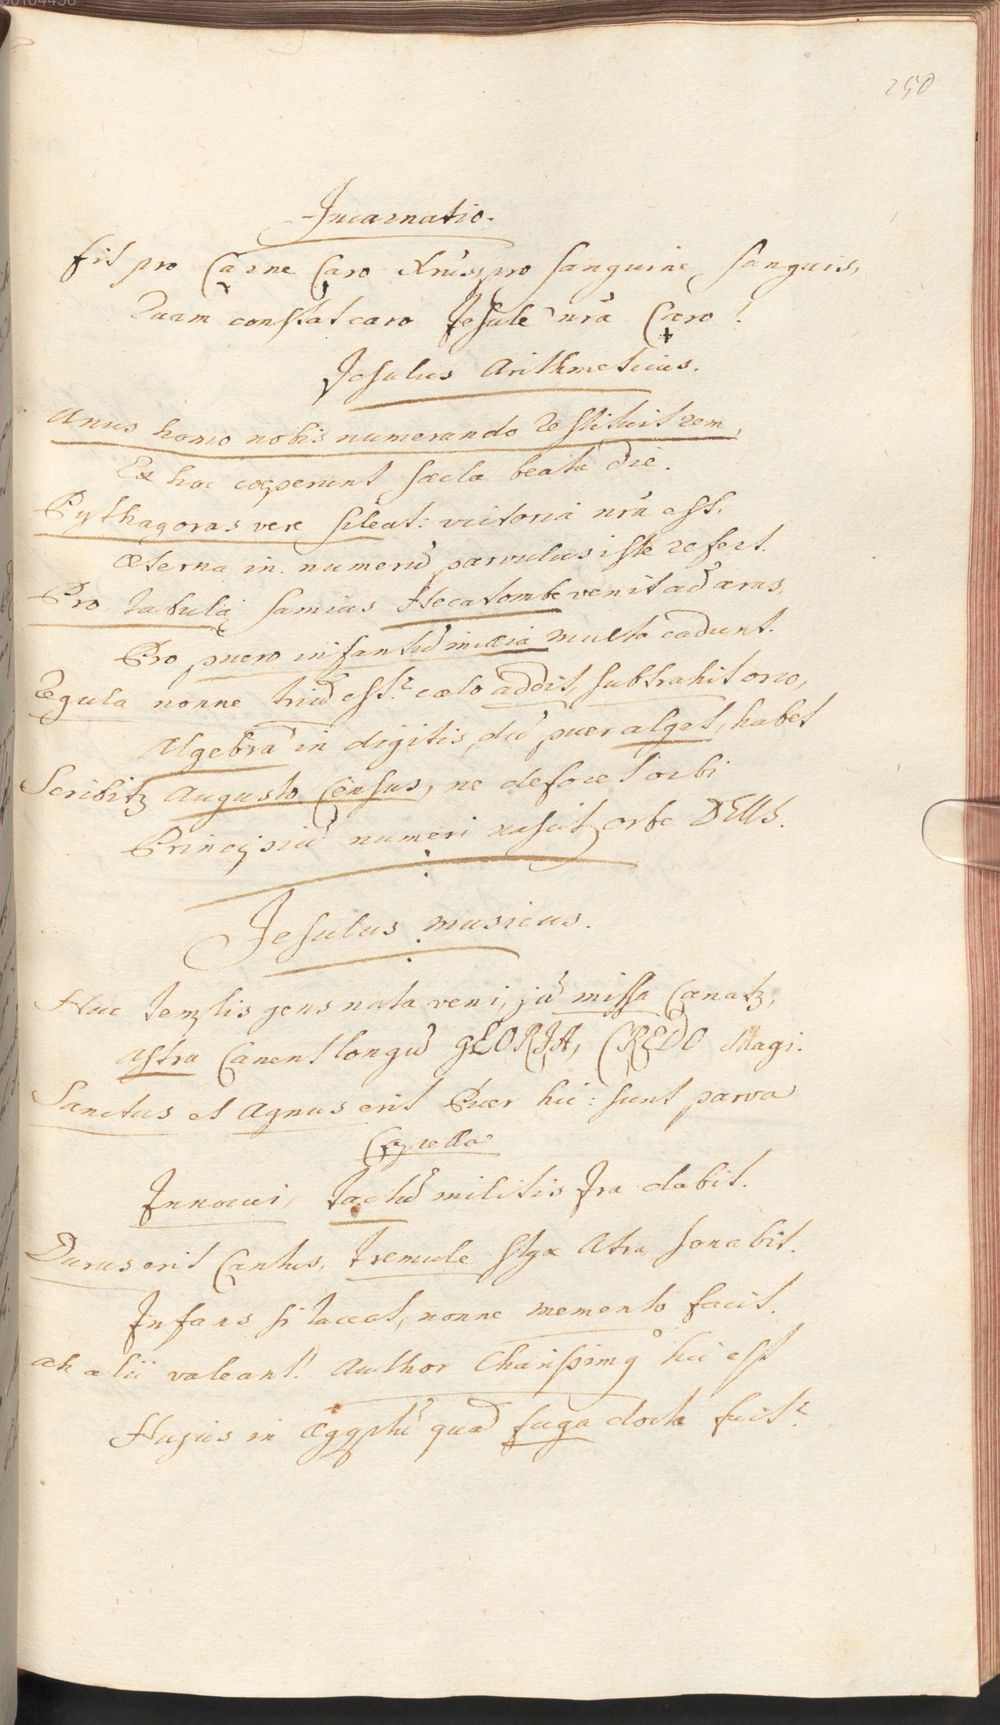 250
Incarnatio.
Fit pro Carne Caro Xrus, pro sanguine sanguis,
Quam constat caro Jesule nrã Caro!
Jesulus Arithmeticus.
Unus homo nobis numerando restituit rem,
Ex hoc cœperunt sæcla beata die.
Pythagoras vere sileat: victoria nrã est.
Æterna in numerũ parvulus iste refert.
Pro tabula samias Hecatombe venit ad aras,
Pro puero infantũ millia multa cadunt.
Regula nonne triũ est? cælo addit, subtrahit orco,
Algebrã in digitis, dũ puer alget, habet
Scribitʒ Augusto Census, ne deforet orbi
Principiũ numeri nascitʒ orbe DEUS.
Jesulus musicus.
Huc templis gens nata veni, jã missa Canatʒ,
Astra Canent longũ GLORIA, CREDO Magi.
Sanctus et Agnus erit Puer hic: sunt parva
Capella
Innocui, tactũ militis Ira dabit.
Durus erit Cantus, tremule styx Atra sonabit.
Infans si taceat, nonne memento facit.
ah alii valeant! Author Charissimꝯ hic est
Hujus in Ægyptũ quàm fuga docta fuit?